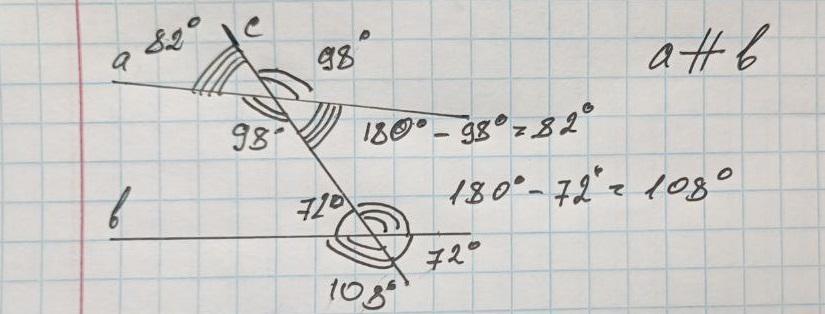 c
82°
a
98°
a ∦ b
98°
180° - 98° = 82°
72°
180° - 72° = 108°
b
72°
108°